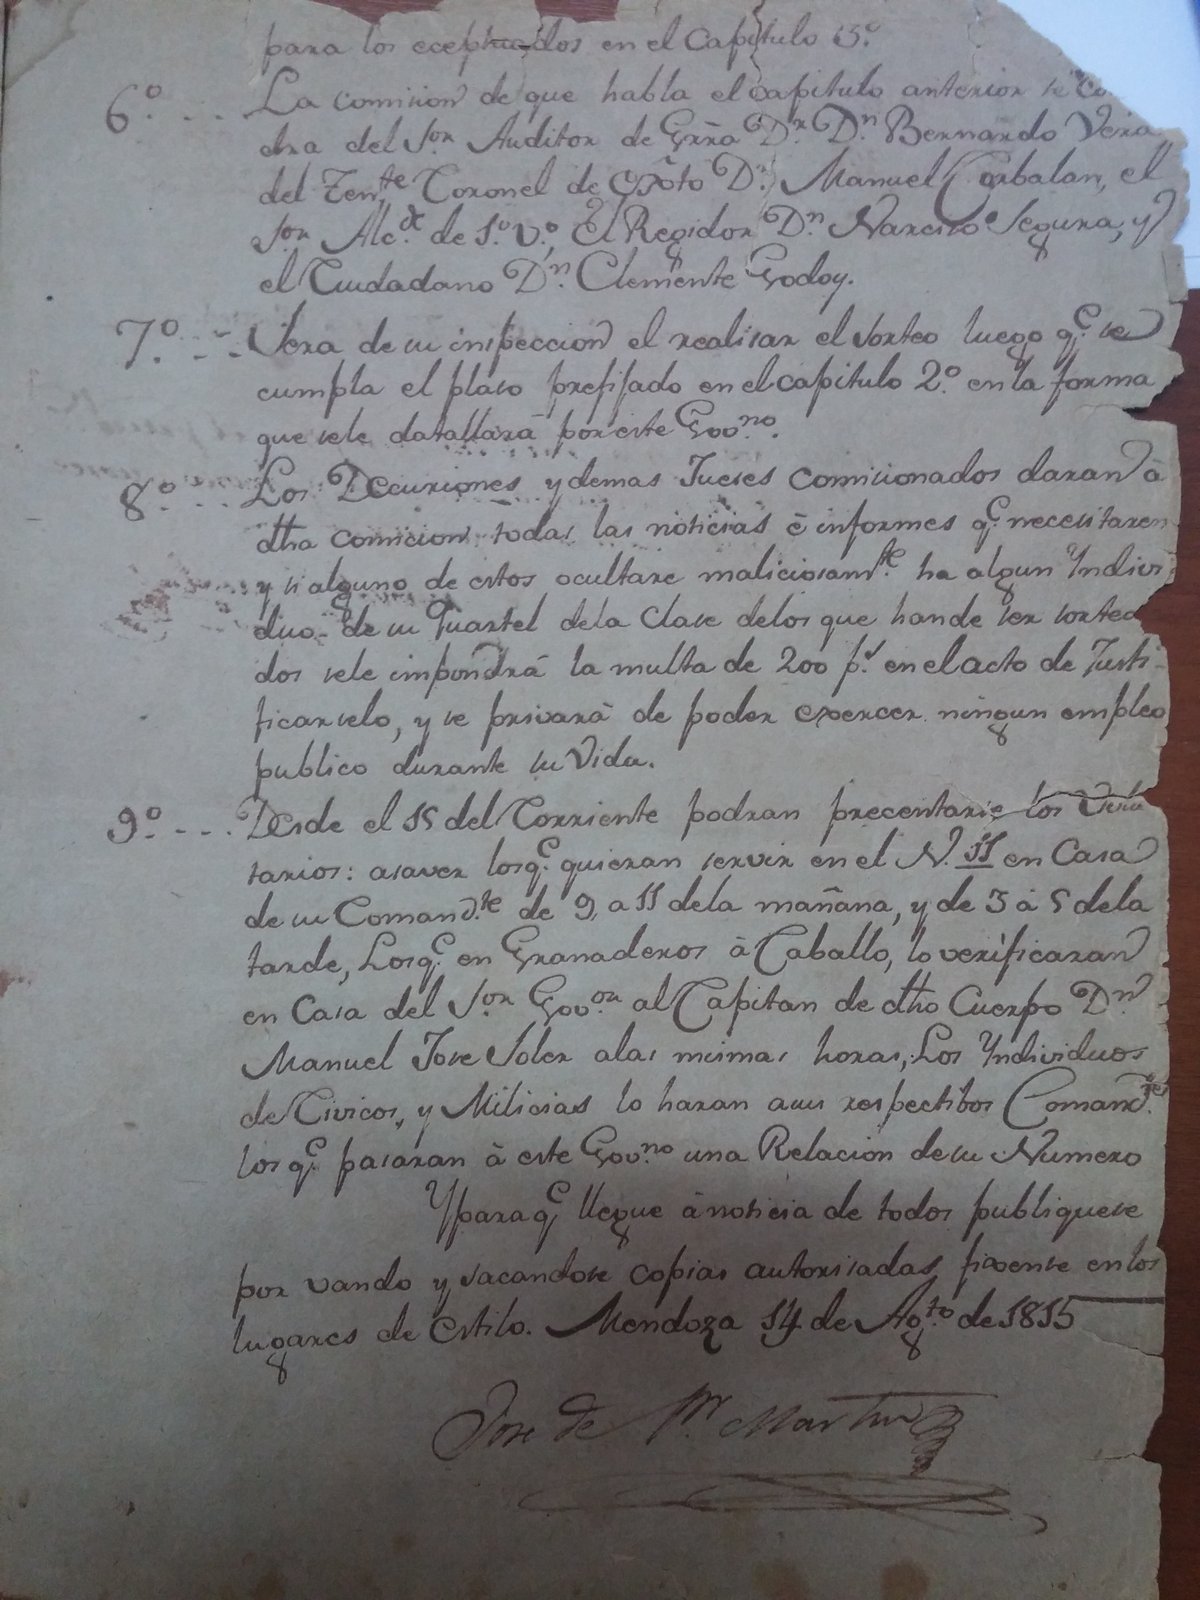 para los eceptuados en el Capitulo 3.º
6.º - - - La comision de que habla el capitulo anterior se
dra del S.or Auditor de Grra D.r D.n Bernardo Vera
del Ten.te Coronel de Exto D.n Manuel Corbalan, el
Sor Alc.e de 1.º V.º, El Regidor D.n Narciso Segura, y
el Ciudadano D.n Clemente Godoy.
7.º - - - Sera de su inspeccion el realisar el sorteo luego q.e se
cumpla el plaso prefijado en el capitulo 2.º en la forma
que sele datallará por este Gov.no
8.º - - - Los Decuriones y demas Jueses comisionados daran á
dha comicion todas las noticias é informes q.e necesitaren
y si alguno de estos ocultare maliciosam.te ha algun Indivi
duo de su Quartel dela Clase delos que hande ser sortea
dos sele impondrá la multa de 200 p.s en el acto de Justi-
ficarselo, y se privará de poder exercer ningun empleo
publico durante su Vida.
9.º - - - Desde el 15 del Corriente podran precentarse los
tarios: asaver los q.e quieran servir en el N. 11 en Casa
de su Comand.te de 9 a 11 dela mañana, y de 3 á 5 dela
tarde, Los q.e en Granaderos á Caballo, lo verificaran
en Casa del S.or Gov.or al Capitan de dho Cuerpo D.n
Manuel Jose Soler alas mismas horas, Los Individuos
de Civicos, y Milicias lo haran asus respectibos Comand.tes
los q.e pasaran á este Gov.no una Relacion de su Numero
Ypara q.e llegue á noticia de todos publiquese
por vando y sacandose copias autorisadas fixense en los
lugares de estilo. Mendoza 14 de Ag.to de 1815
Jose de S.n Martin